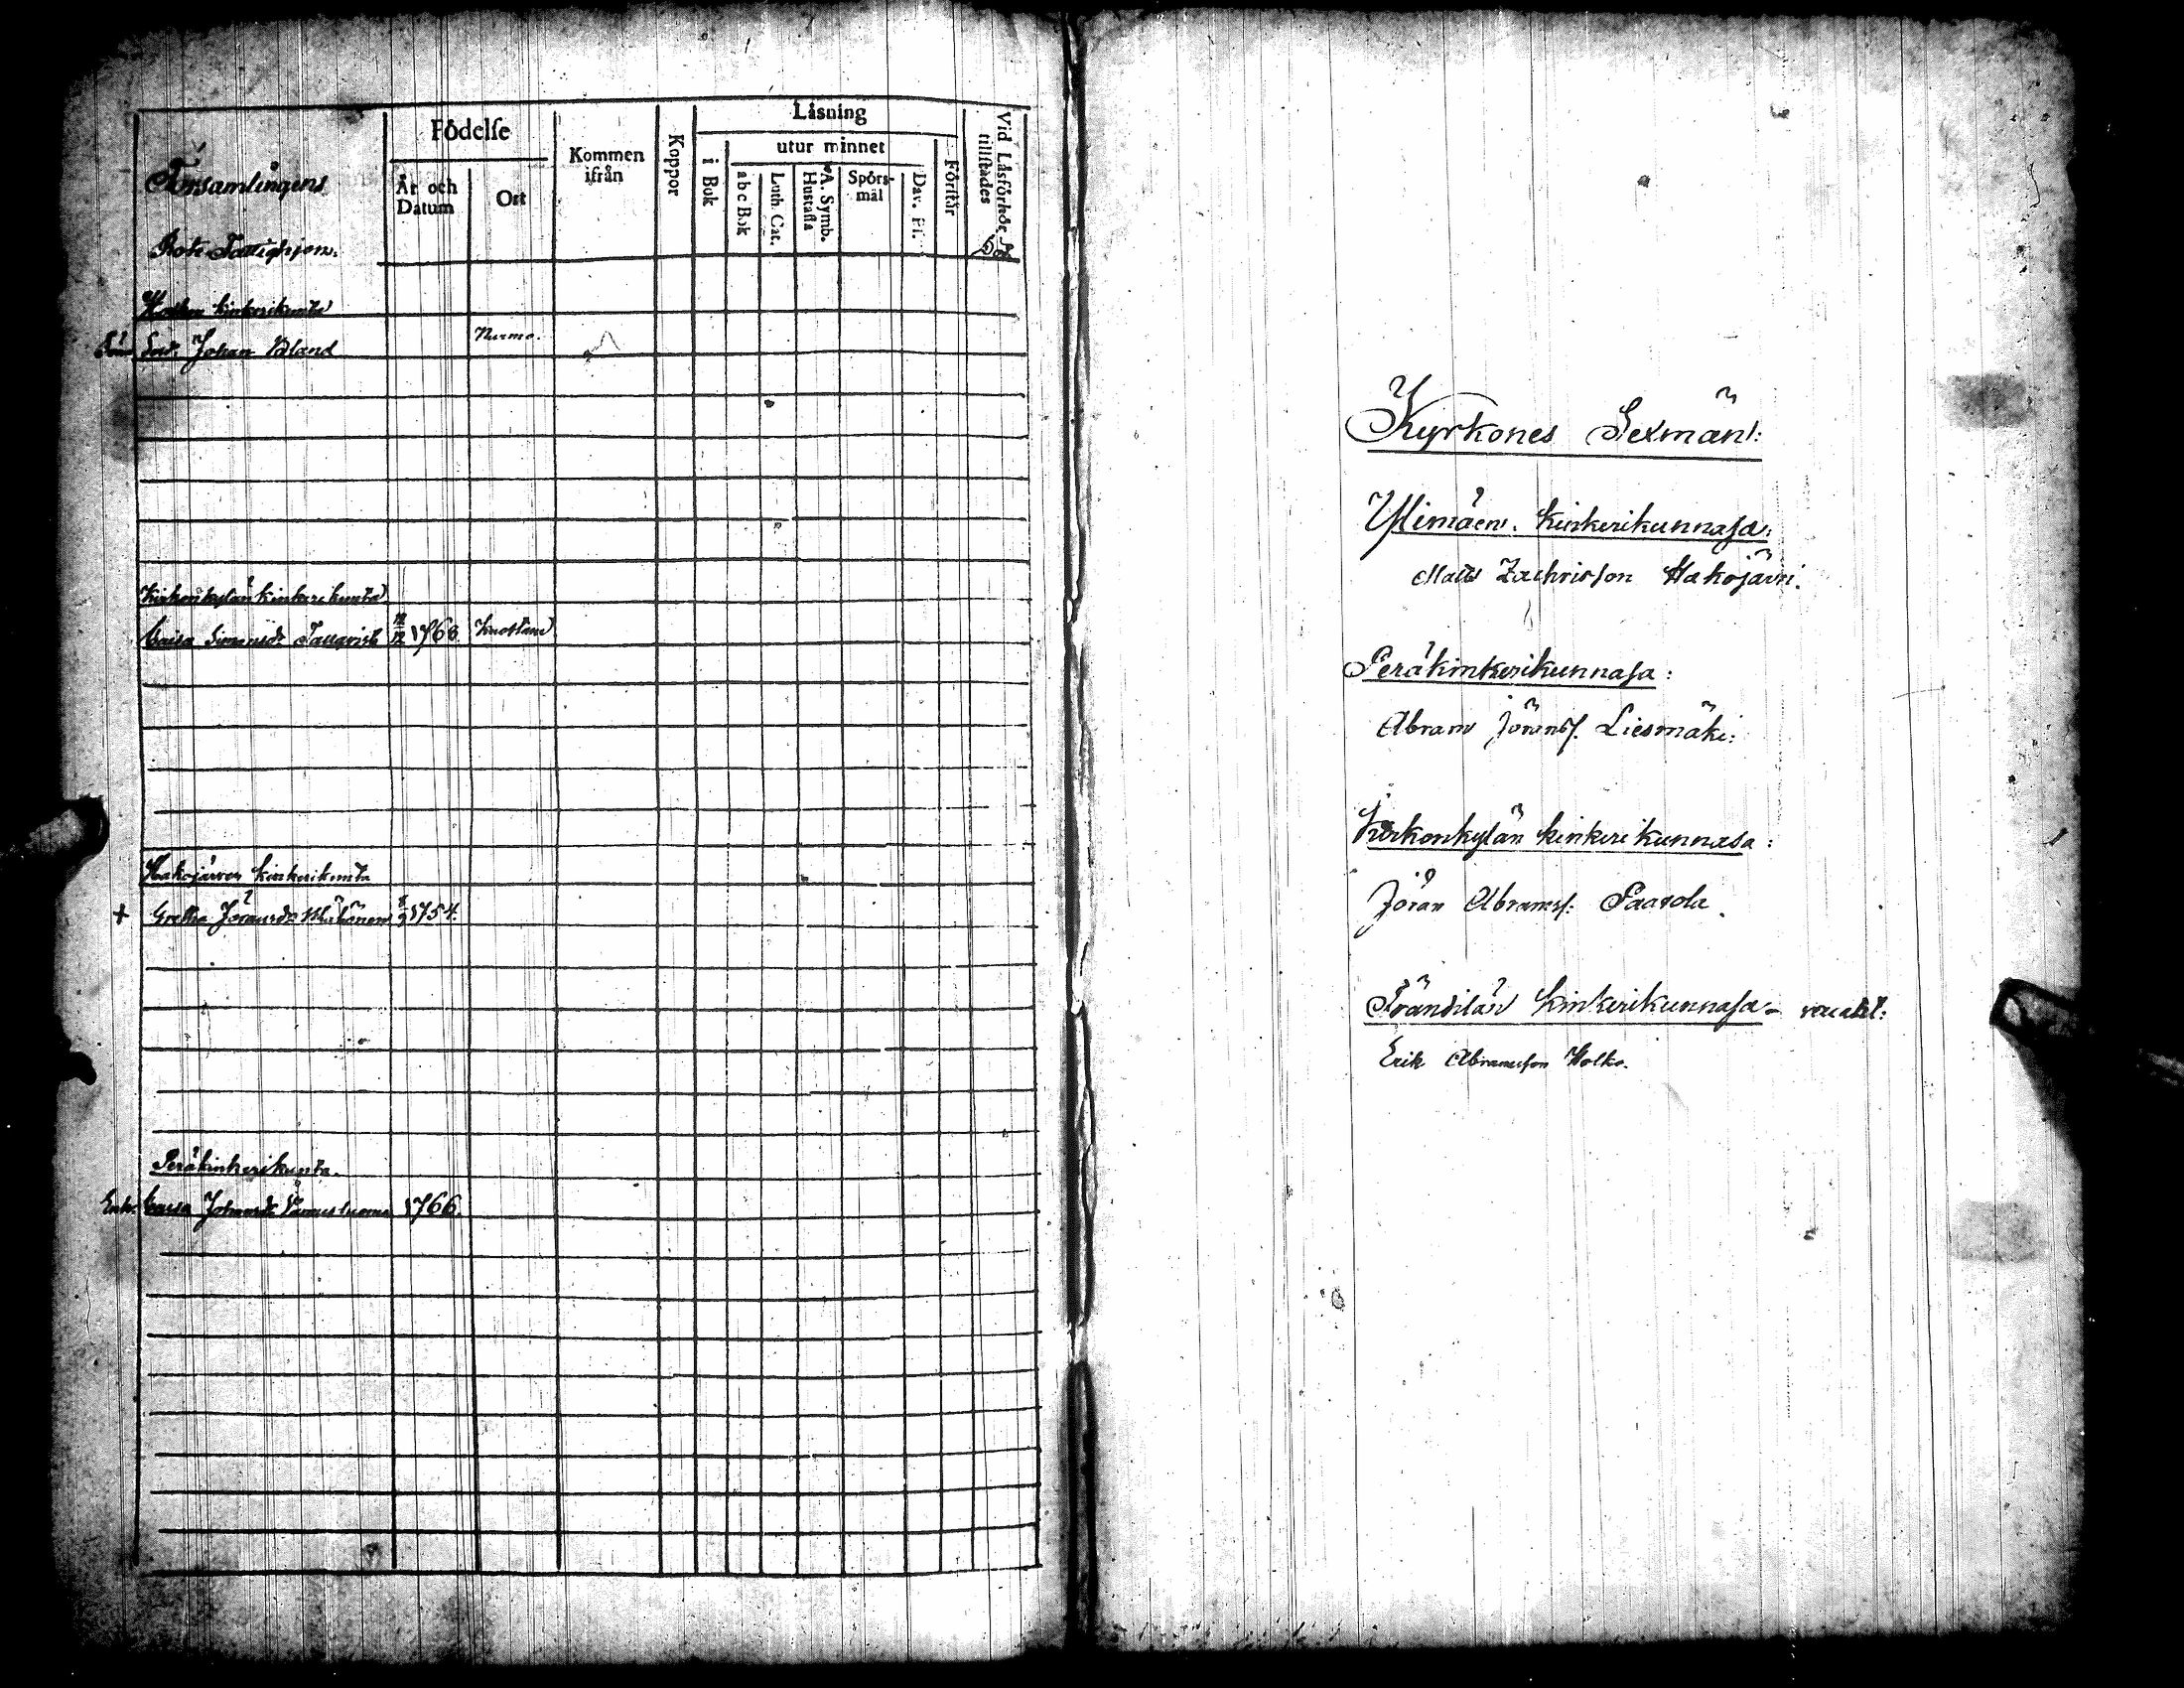 Församlingens
Rote Fattighjon.
Födelse
År och Datum
Ort
Kommen ifrån
Koppor
Läsning
i Bok
utur minnet
abc Bok
Luth. Cat.
A. Symb. Hustafla
Spörs-mål
Dav. Ps.
Förstår
Vid Läsförhör tillstädes
kinkerikunta
Sold. Johan Bland Nurmo.
Kirkonkylän kinkerikunta
Caisa Simonsdr 12/12 1766
Hakojärven kinkerikunta
+ Gretha Jöransdr 1754.
Peräkinkerikunta.
Enk. Caisa Johansdr 1766.
Kyrkones Sexmän:
Ylimäen kinkerikunnasa:
Matts Zachrisson Hakojärvi.
Peräkinkerikunnasa:
Abram Jöransf. Liesmäki:
Kirkonkylän kinkerikunnasa:
Jöran Abramsf. Paavola.
Tränditän kinkerikunnasa -
Erik Abramsson Holko.